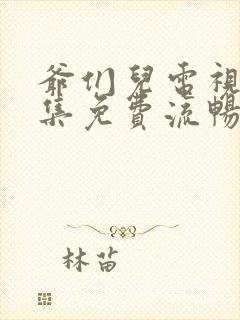 爺们兒電視
集免費流暢
林苗